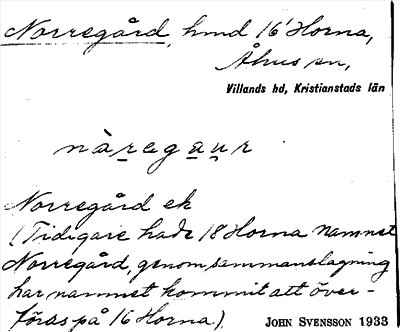 Norregård, hmd 16' Horna,
Åhus sn,
Villands hd, Kristianstads län
nàregaur
Norregård ek
(Tidigare hade 18 Horna namnet
Norregård, genom sammanslagning
har namnet kommit att över-
föras på 16 Horna).
JOHN SVENSSON 1933